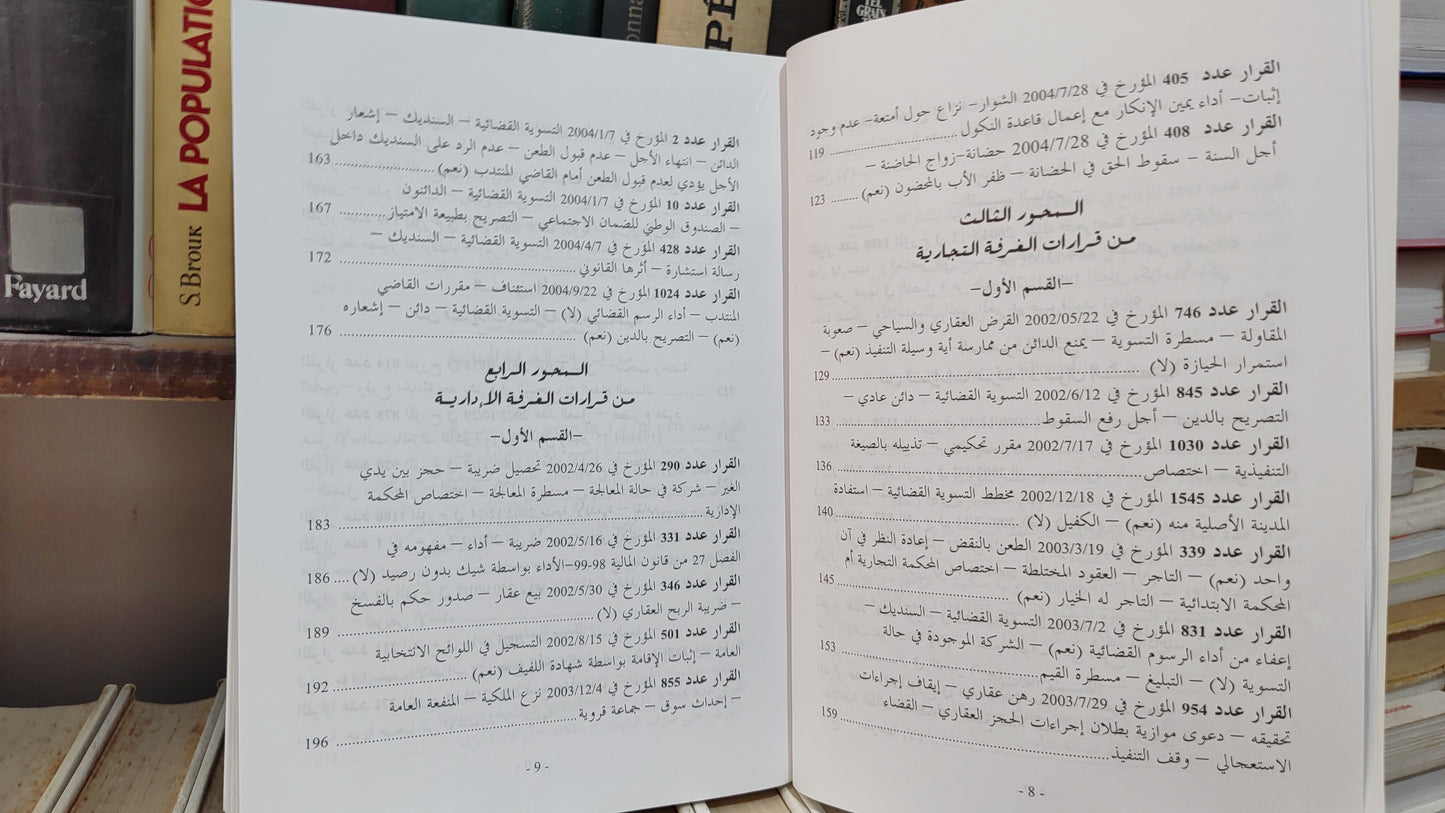 القرار عدد 405 المؤرخ في 2004/7/28 الشوار- نزاع حول أمتعة- عدم وجود
إثبات- أداء يمين الإنكار مع إعمال قاعدة النكول ................ 119
القرار عدد 408 المؤرخ في 2004/7/28 حضانة-زواج الحاضنة –
أجل السنة – سقوط الحق في الحضانة – ظفر الأب بالمحضون (نعم) ......... 123
المحور الثالث
من قرارات الغرفة التجارية
-القسم الأول-
القرار عدد 746 المؤرخ في 2002/05/22 القرض العقاري والسياحي – صعوبة
المقاولة – مسطرة التسوية – يمنع الدائن من ممارسة أية وسيلة التنفيذ (نعم) –
استمرار الحيازة (لا) ................ 129
القرار عدد 845 المؤرخ في 2002/6/12 التسوية القضائية – دائن عادي –
التصريح بالدين – أجل رفع السقوط ................ 133
القرار عدد 1030 المؤرخ في 2002/7/17 مقرر تحكيمي – تذييله بالصيغة
التنفيذية – اختصاص ................ 136
القرار عدد 1545 المؤرخ في 2002/12/18 مخطط التسوية القضائية – استفادة
المدينة الأصلية منه (نعم) – الكفيل (لا) ................ 140
القرار عدد 339 المؤرخ في 2003/3/19 الطعن بالنقض – إعادة النظر في آن
واحد (نعم) – التاجر – العقود المختلطة – اختصاص المحكمة التجارية أم
المحكمة الابتدائية – التاجر له الخيار (نعم) ................ 145
القرار عدد 831 المؤرخ في 2003/7/2 التسوية القضائية – السنديك –
إعفاء من أداء الرسوم القضائية (نعم) – الشركة الموجودة في حالة
التسوية (لا) – التبليغ – مسطرة القيم ................ 153
القرار عدد 954 المؤرخ في 2003/7/29 رهن عقاري – إيقاف إجراءات
تحقيقه – دعوى موازية بطلان إجراءات الحجز العقاري – القضاء
الاستعجالي – وقف التنفيذ ................ 159
- 8 -
القرار عدد 2 المؤرخ في 2004/1/7 التسوية القضائية – السنديك – إشعار
الدائن – انتهاء الأجل – عدم قبول الطعن – عدم الرد على السنديك داخل
الأجل يؤدي لعدم قبول الطعن أمام القاضي المنتدب (نعم) ................ 163
القرار عدد 10 المؤرخ في 2004/1/7 التسوية القضائية – الدائنون
– الصندوق الوطني للضمان الاجتماعي – التصريح بطبيعة الامتياز ............ 167
القرار عدد 428 المؤرخ في 2004/4/7 التسوية القضائية – السنديك –
رسالة استشارة – أثرها القانوني ................ 172
القرار عدد 1024 المؤرخ في 2004/9/22 استئناف – مقررات القاضي
المنتدب – أداء الرسم القضائي (لا) – التسوية القضائية – دائن – إشعاره
(نعم) – التصريح بالدين (نعم) ................ 176
المحور الرابع
من قرارات الغرفة الإدارية
-القسم الأول-
القرار عدد 290 المؤرخ في 2002/4/26 تحصيل ضريبة – حجز بين يدي
الغير – شركة في حالة المعالجة – مسطرة المعالجة – اختصاص المحكمة
الإدارية ................ 183
القرار عدد 331 المؤرخ في 2002/5/16 ضريبة – أداء – مفهومه في
الفصل 27 من قانون المالية 98-99-الأداء بواسطة شيك بدون رصيد (لا) .... 186
القرار عدد 346 المؤرخ في 2002/5/30 بيع عقار – صدور حكم بالفسخ
– ضريبة الربح العقاري (لا) ................ 189
القرار عدد 501 المؤرخ في 2002/8/15 التسجيل في اللوائح الانتخابية
العامة – إثبات الإقامة بواسطة شهادة اللفيف (نعم) ................ 192
القرار عدد 855 المؤرخ في 2003/12/4 نزع الملكية – المنفعة العامة
– إحداث سوق – جماعة قروية ................ 196
- 9 -
Fayard
S. Brouk LA POPULATI